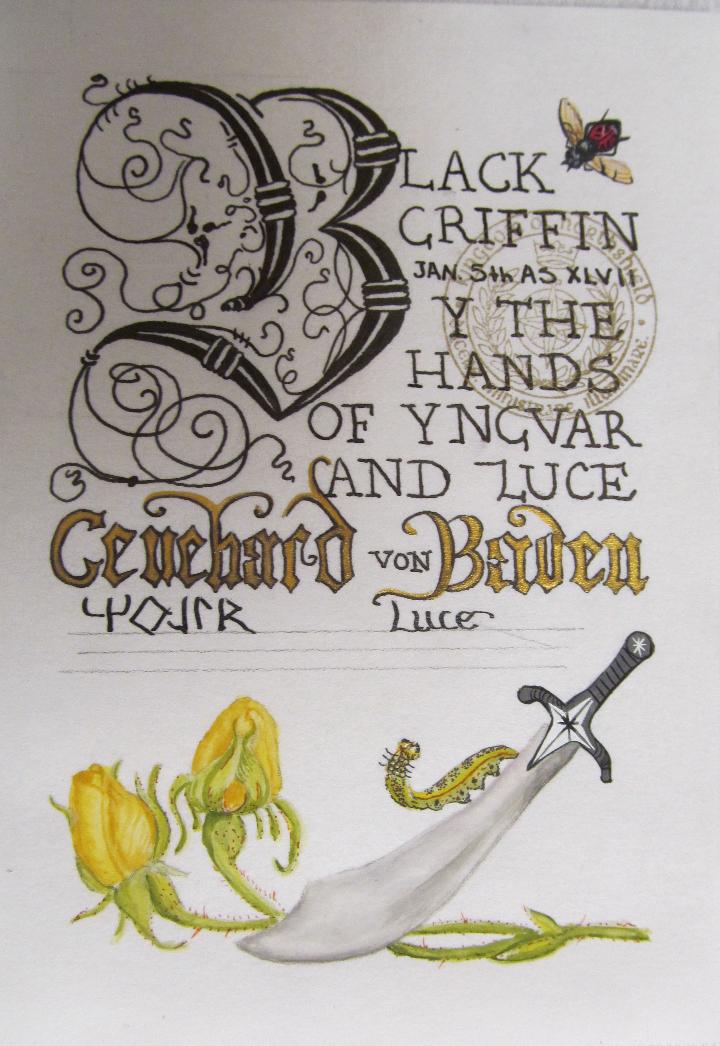 B
LACK
GRIFFIN
JAN. 5th AS XLVII
Y THE
HANDS
OF YNGVAR
AND LUCE
Genehard VON Baden
Luce